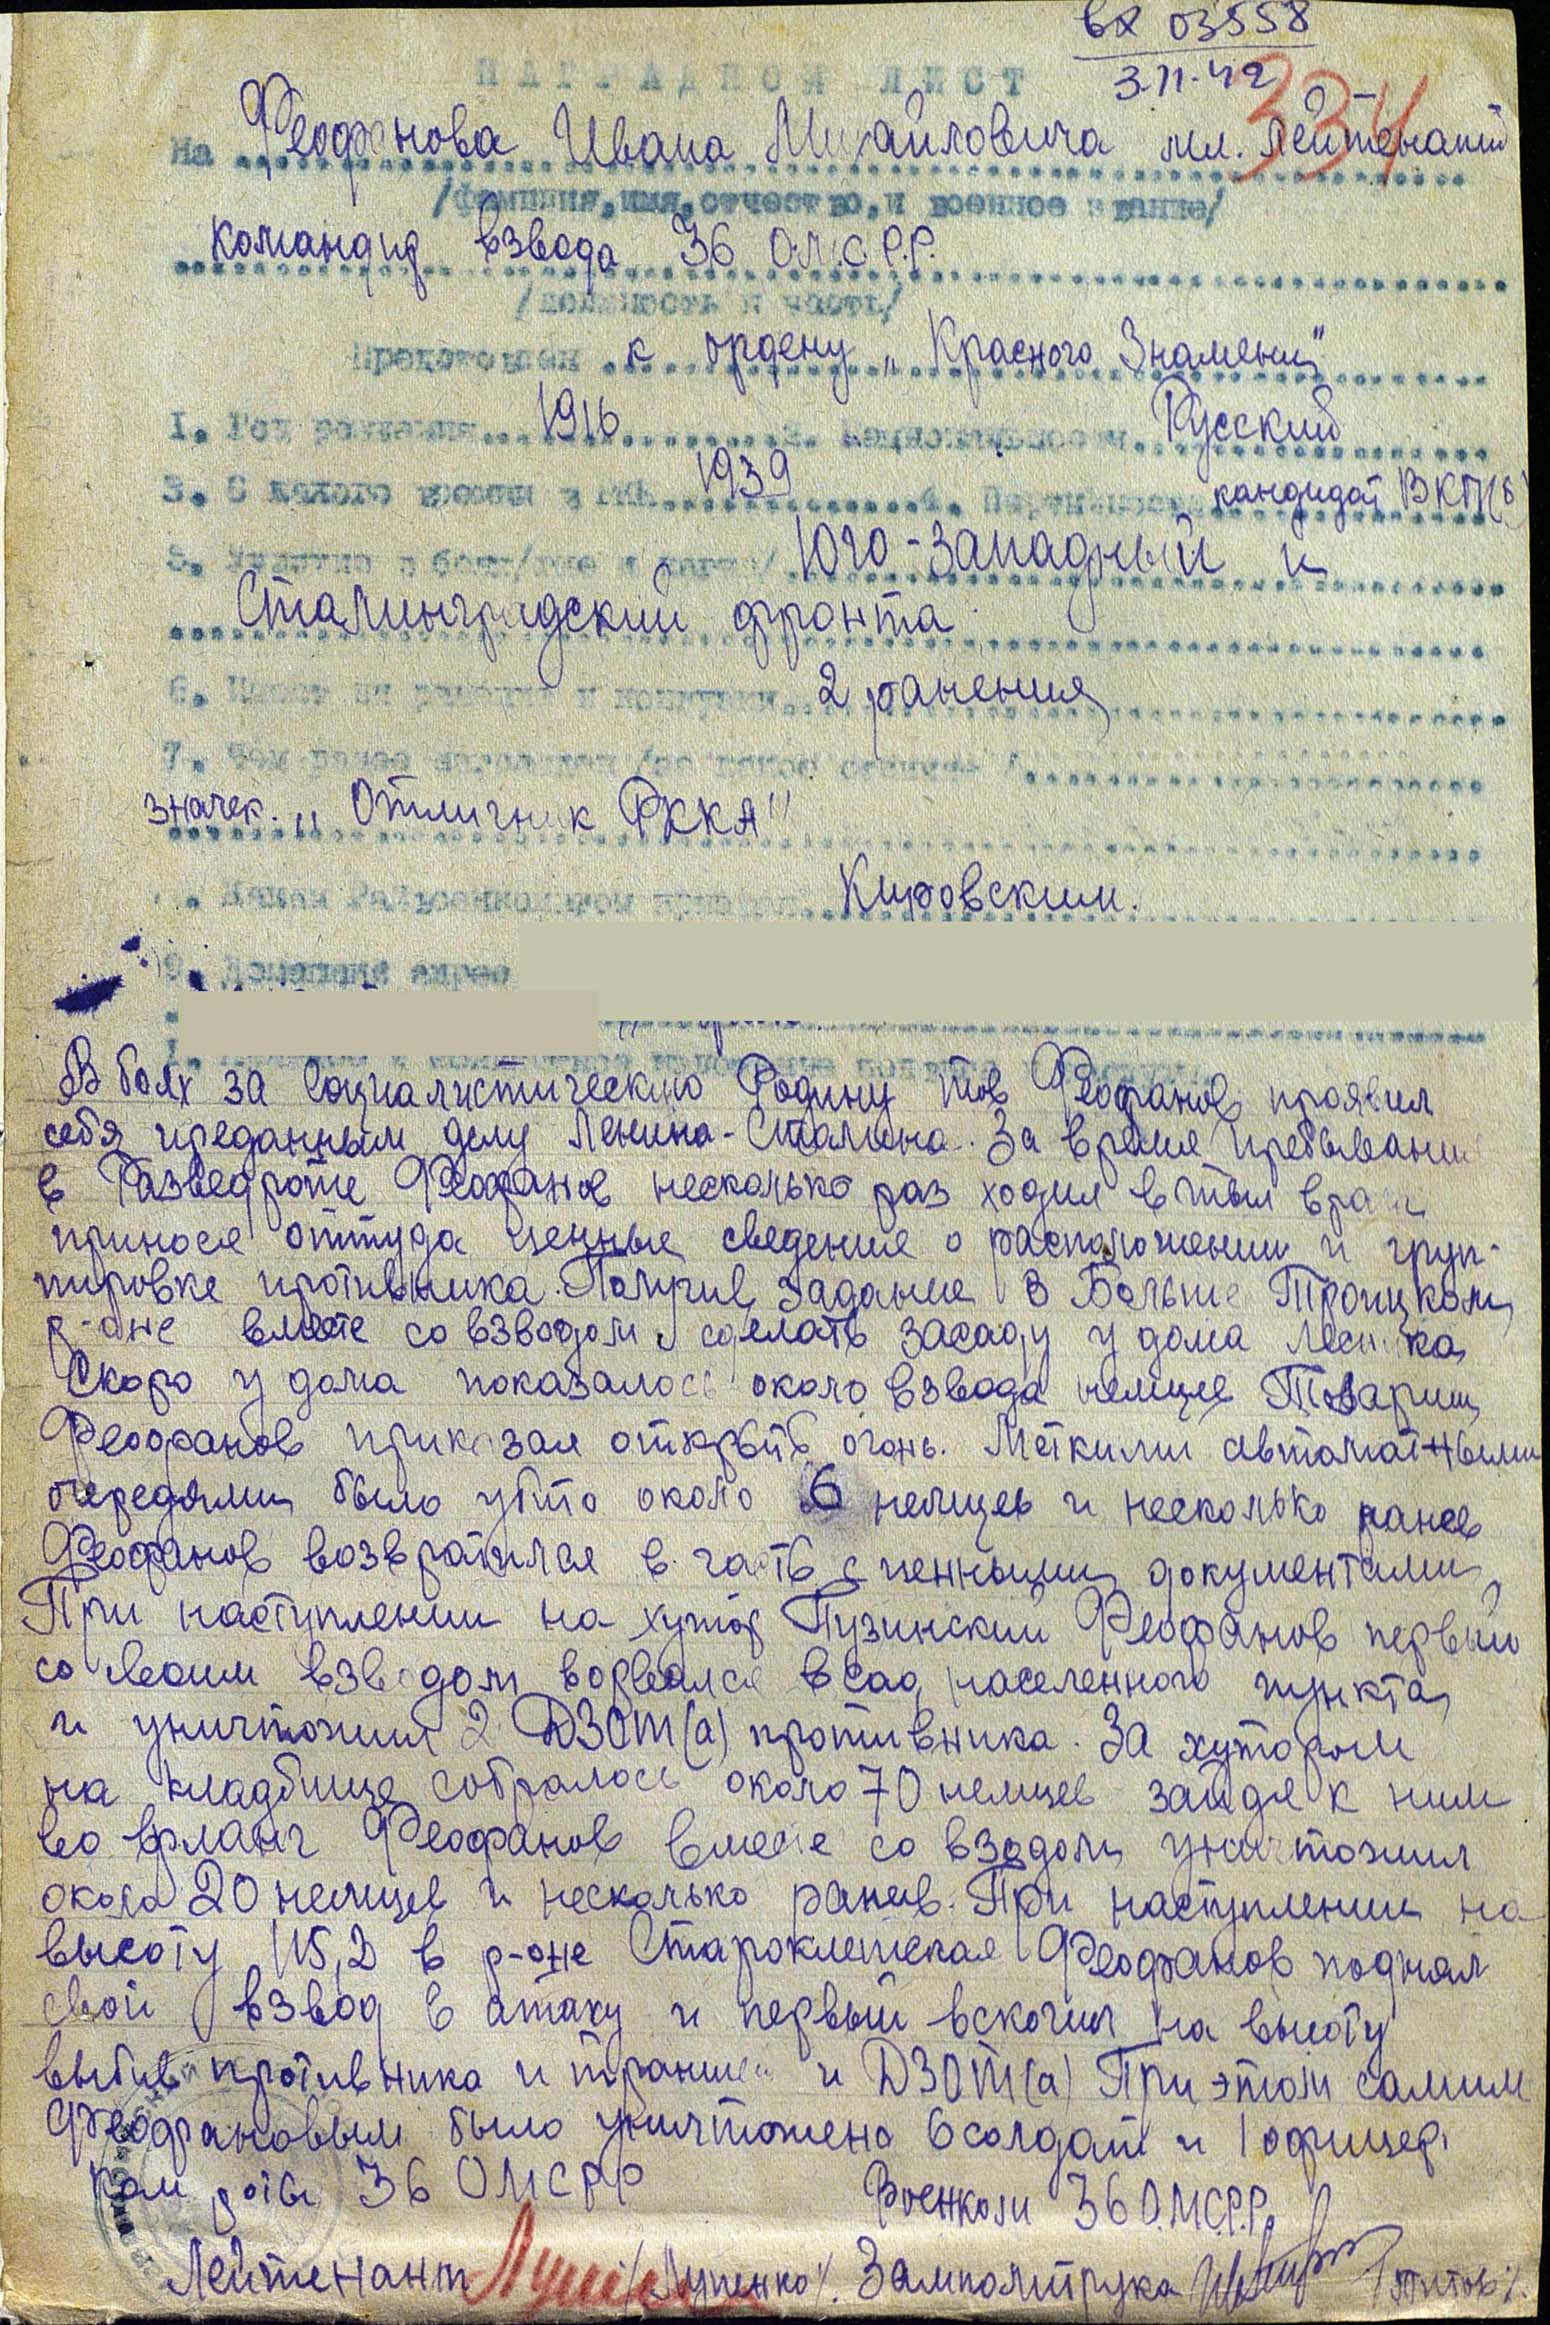 вх 03558
3.11.42
334
НАГРАДНОЙ ЛИСТ
На Феофанова Ивана Михайловича мл. лейтенант
/фамилия, имя, отчество, и военное звание/
командир взвода 36 О.М.С.Р.Р.
/должность и часть/
Представлен к ордену „Красного Знамени"
1. Год рождения 1916 2. Национальность Русский
3. С какого времени в РККА 1939 4. Партийность кандидат ВКП(б)
5. Участие в боях /где и когда/ Юго-Западный и
Сталинградский фронта
6. Имеет ли ранения и контузии 2 ранения
7. Чем ранее награжден /за какие отличия/
значек „Отличник РККА"
Каким Райвоенкоматом призван Кировским.
9. Домашний адрес
В боях за социалистическую Родину тов Феофанов проявил
себя преданным делу Ленина-Сталина. За время пребывания
в Разведроте Феофанов несколько раз ходил в тыл врага
принося оттуда ценные сведение о расположении и груп-
пировке противника. Получив задание в Больше Троицком
р-оне вместе со взводом сделать засаду у дома лесника
Скоро у дома показалось около взвода немцев Товарищ
Феофанов приказал открыть огонь. Меткими автоматными
очередями было убито около 6 немцев и несколько ранев
Феофанов возвратился в часть с ценными документами
При наступлении на хутор Пузинский Феофанов первый
со своим взводом ворвался в сад населенного пункта
и уничтожил 2 ДЗОТ(а) противника. За хутором
на кладбище собралось около 70 немцев зайдя к ним
во фланг Феофанов вместе со взодом уничтожил
около 20 немцев и несколько ранив. При наступлении на
высоту 115,2 в р-оне Староклетская Феофанов поднял
свой взвод в атаку и первый вскочил на высоту
выбив противника и траншеи и ДЗОТ(а) При этом самим
Феофановым было уничтожено 6 солдат и 1 офицер.
Ком роты 36 ОМСРР Военком 36 О.М.С.Р.Р.
Лейтенант /Лупенко/. Замполитрука /Титов/.